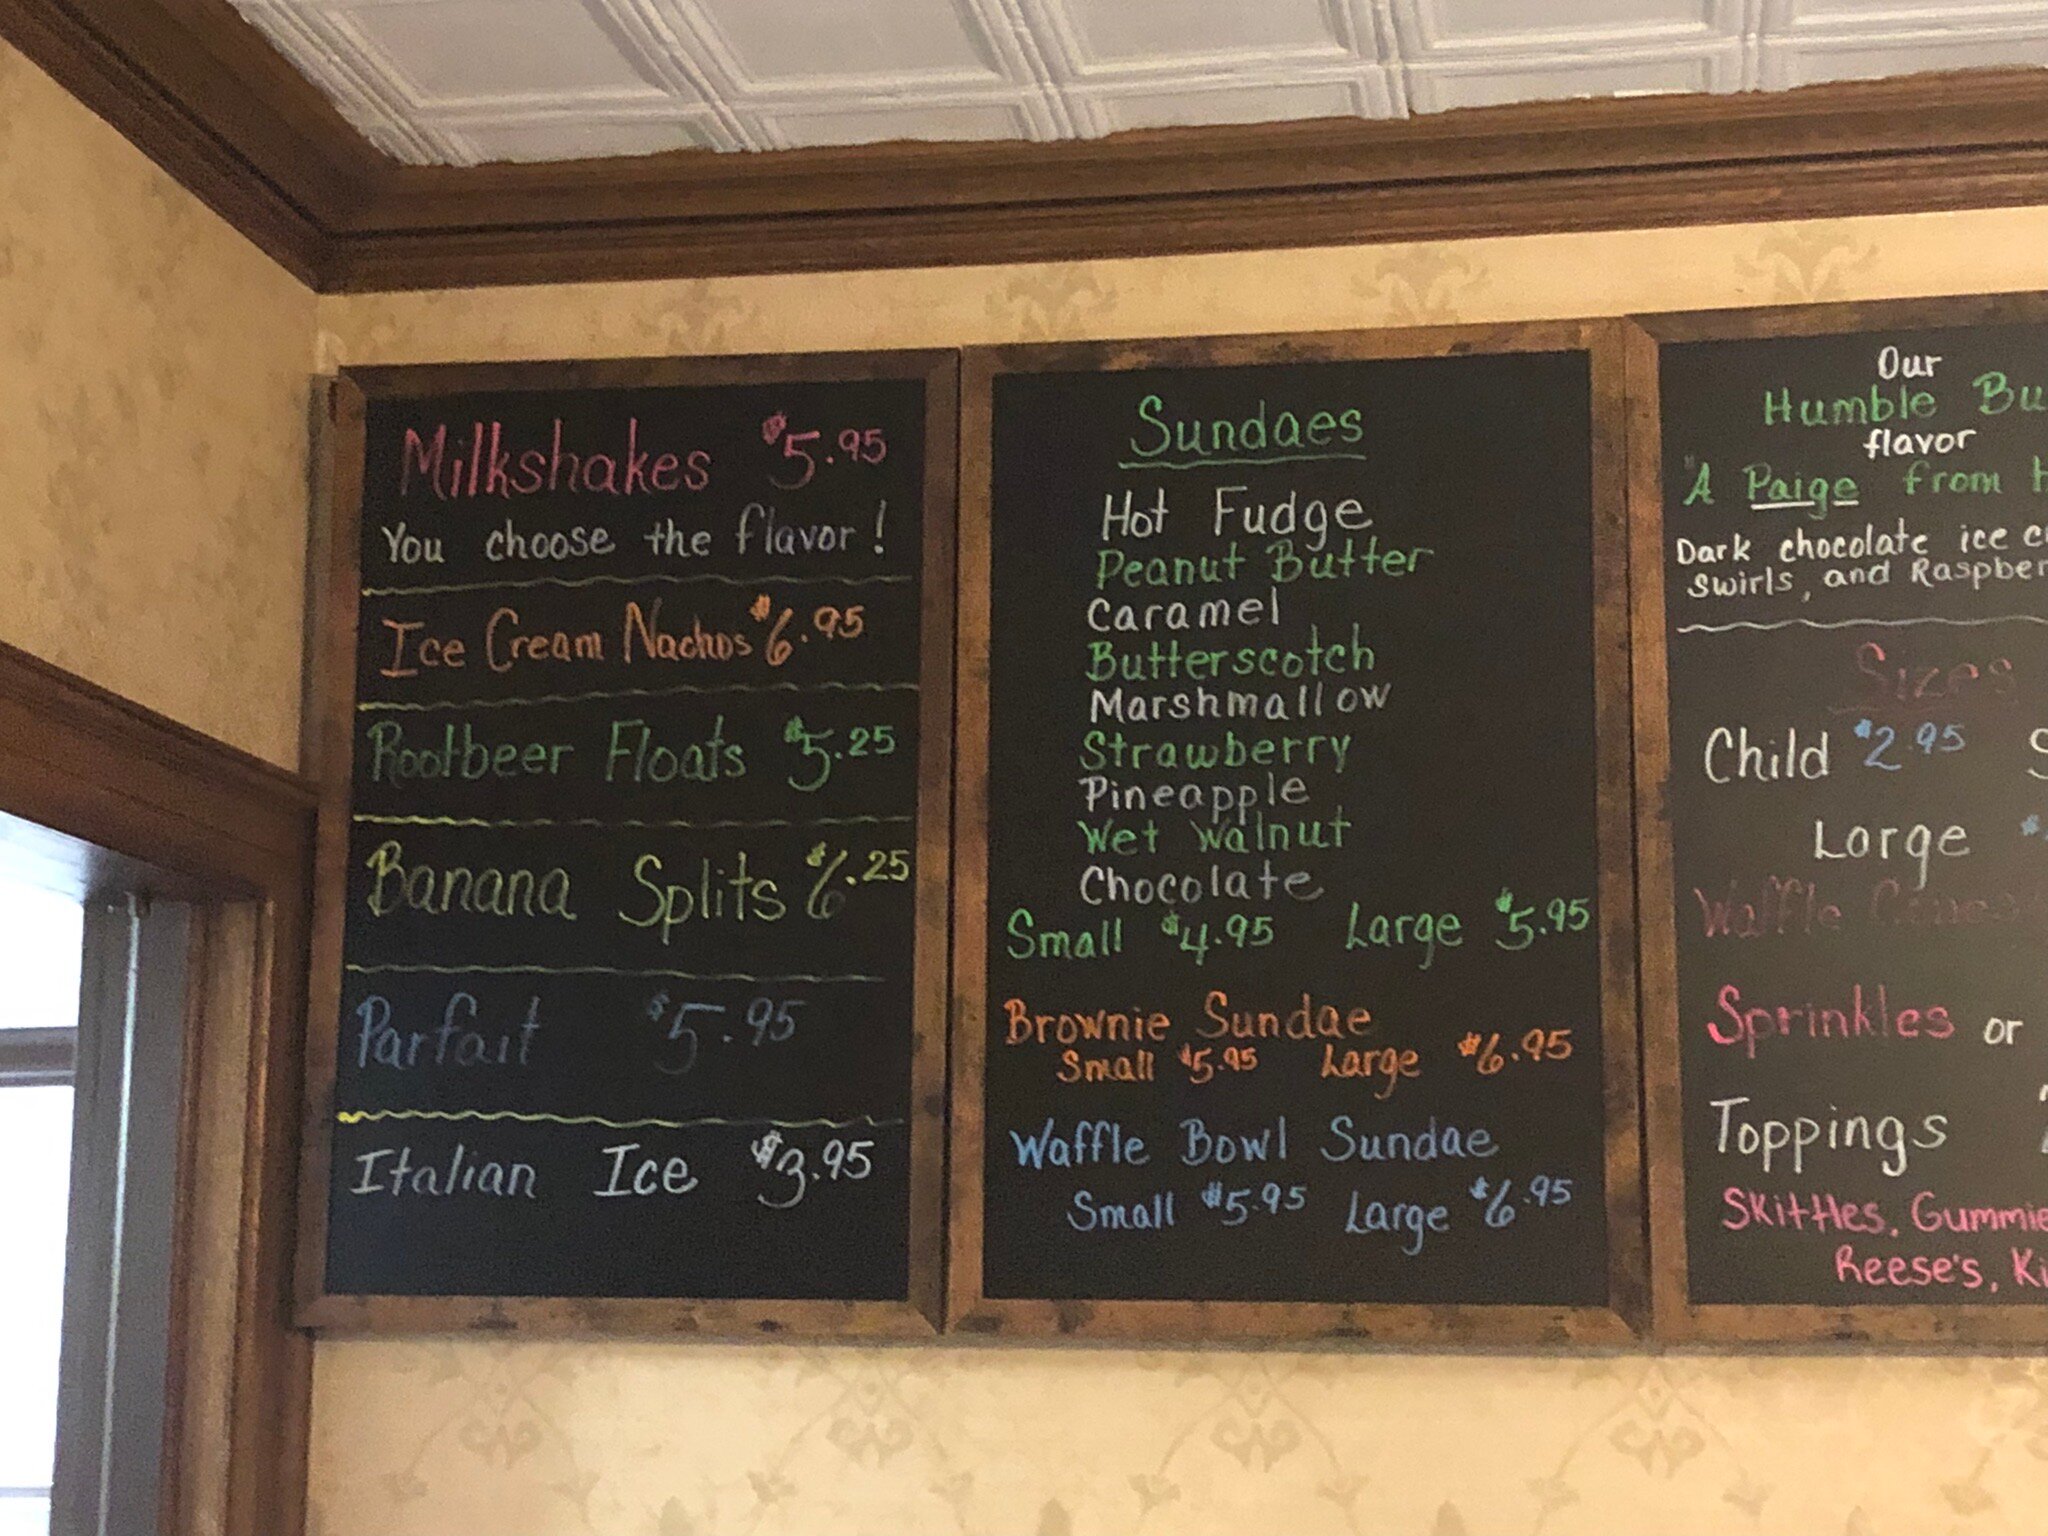 Milkshakes $5.95
You choose the flavor!
Ice Cream Nachos $6.95
Rootbeer Floats $5.25
Banana Splits $6.25
Parfait $5.95
Italian Ice $3.95
Sundaes
Hot Fudge
Peanut Butter
Caramel
Butterscotch
Marshmallow
Strawberry
Pineapple
Wet Walnut
Chocolate
Small $4.95 Large $5.95
Brownie Sundae
Small $5.95 Large $6.95
Waffle Bowl Sundae
Small $5.95 Large $6.95
Our
Humble
flavor
"A Paige from
Dark chocolate ice
Swirls, and
Sizes
Child $2.95
Large
Waffle
Sprinkles or
Toppings
Skittles,
Reese's,